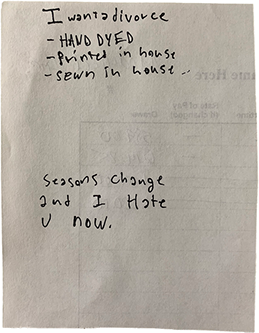 I want a divorce
- HAND DYED
- Printed in house
- sewn in house --
seasons change
and I Hate
U now.